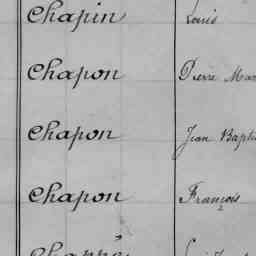 Chapin Louis
Chapon Pierre Mar
Chapon Jean Bapti
Chapon François
Chappé